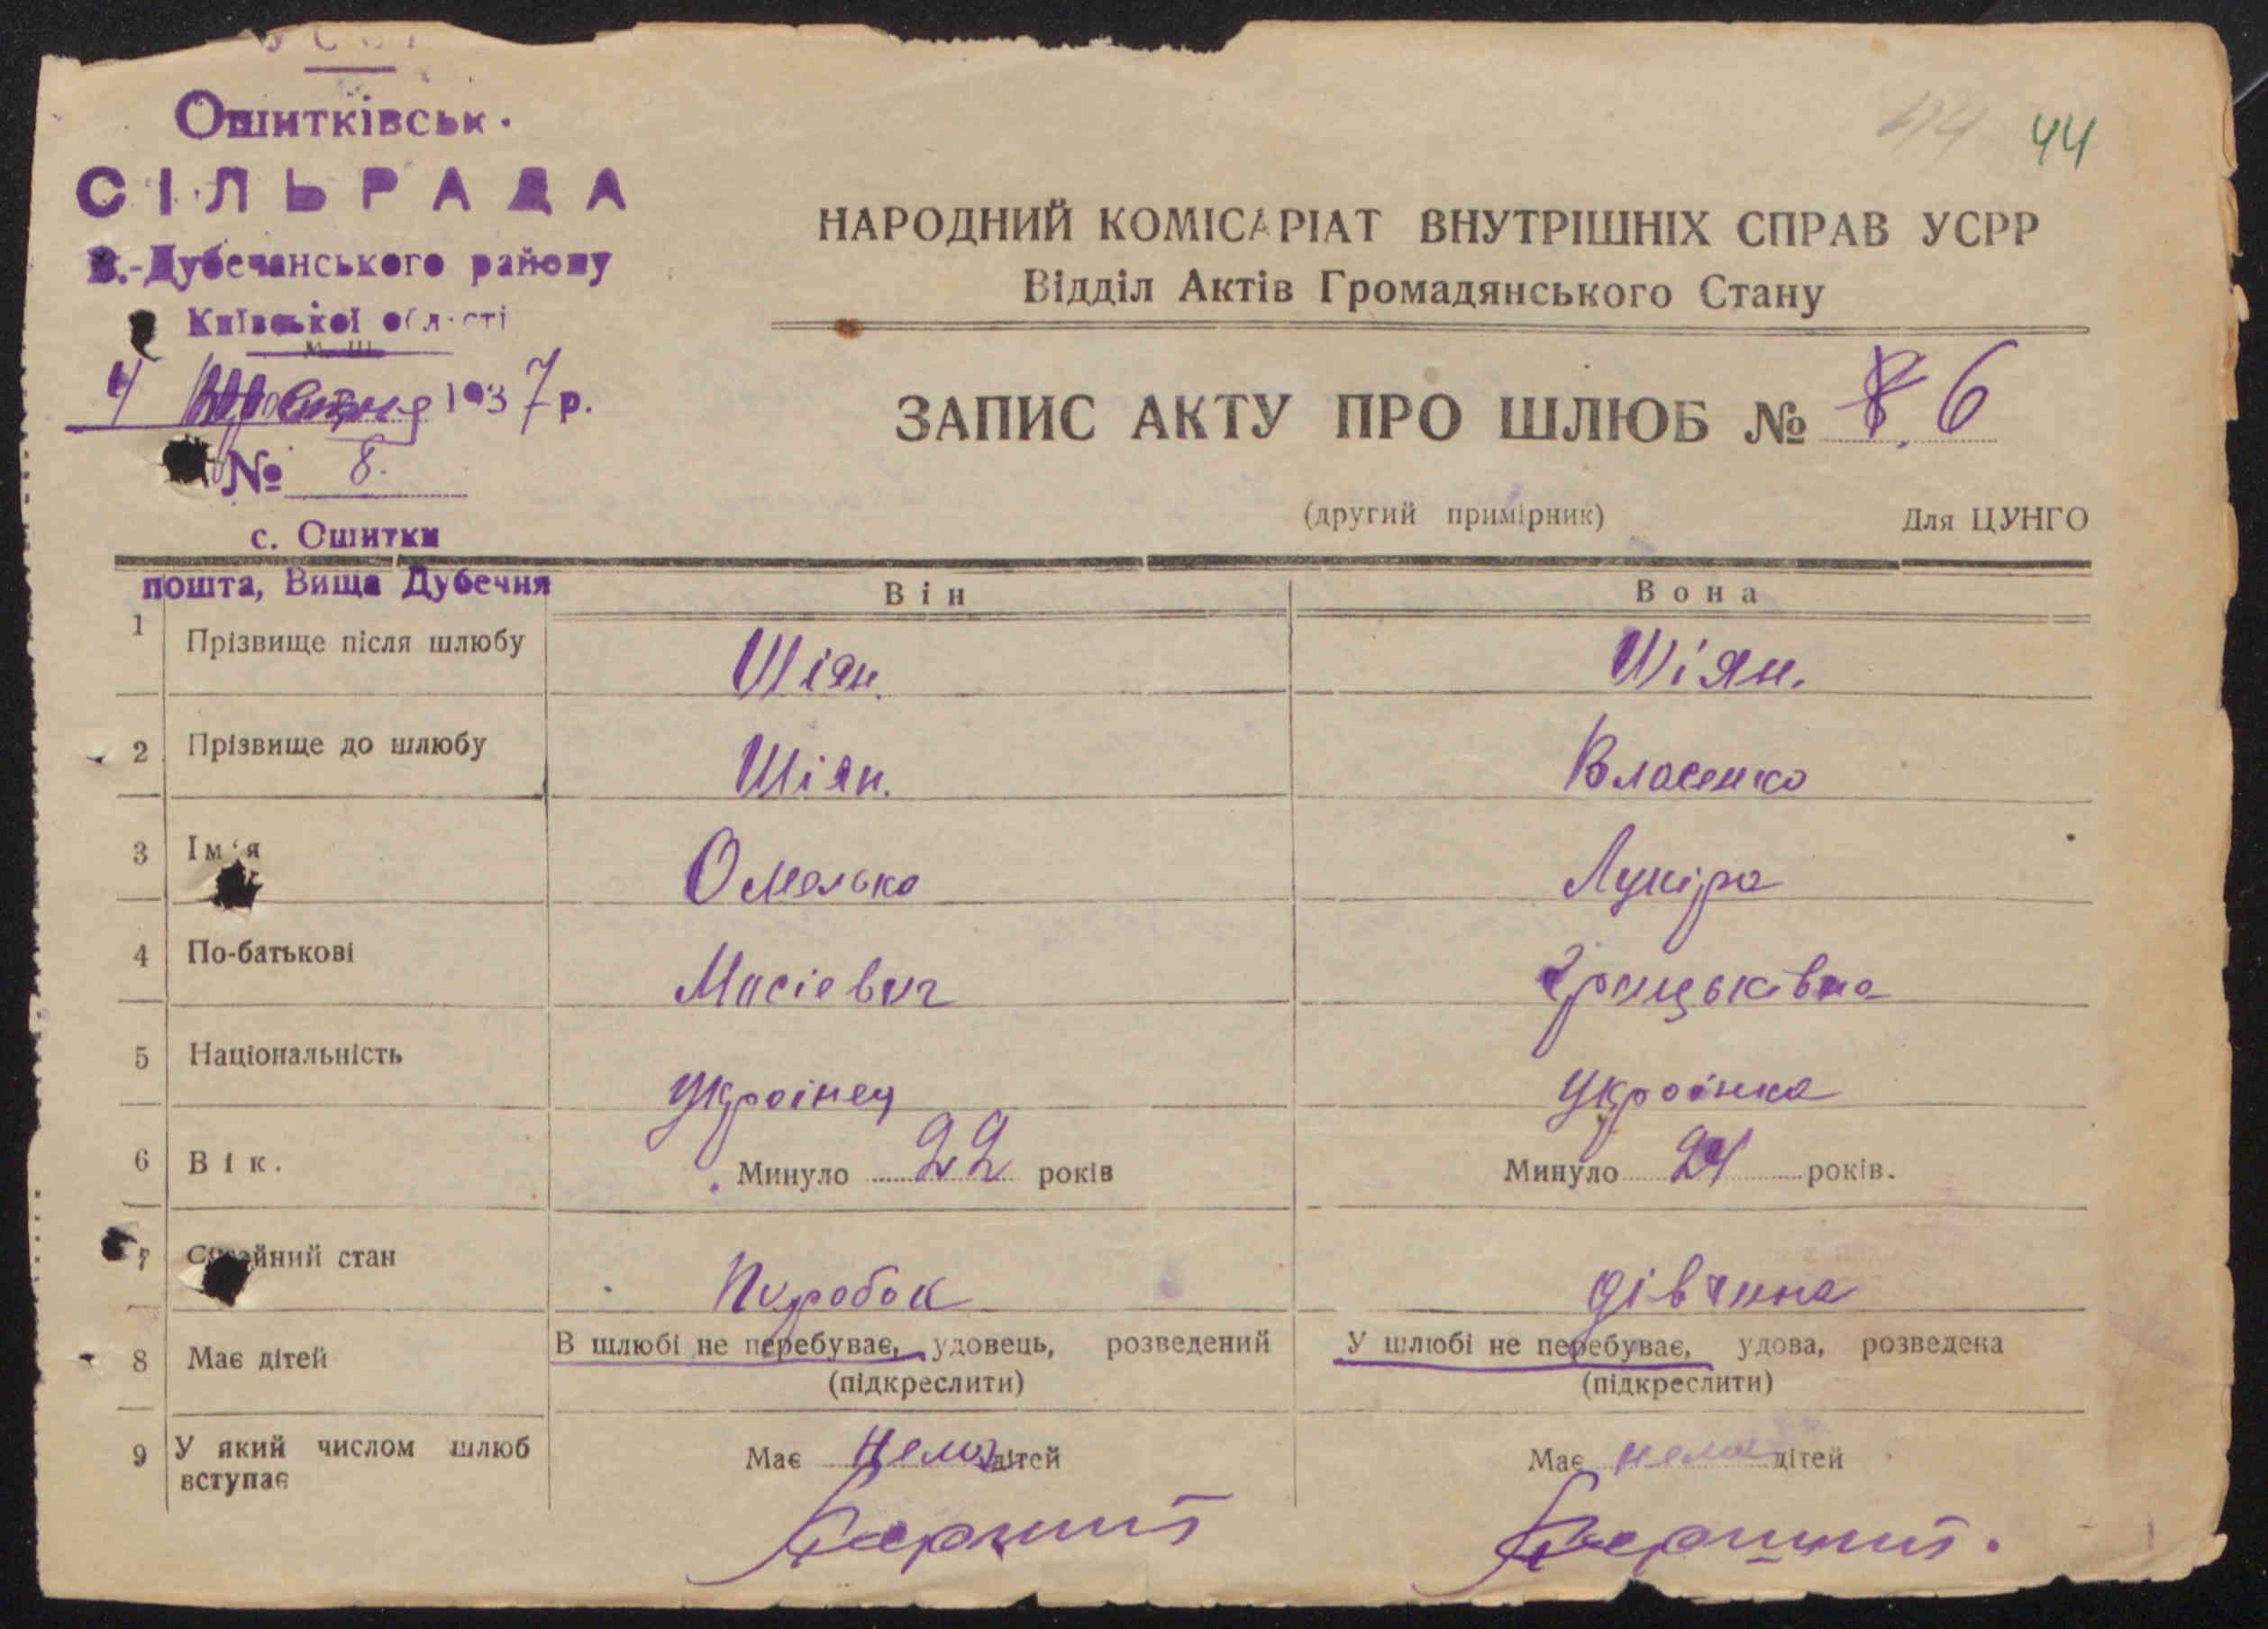 УСРР
Ошитківськ.
СІЛЬРАДА
В.-Дубечанського району
Київської області
4 1937 р.
№ 8.
с. Ошитки
пошта, Вища Дубечня
44 44
НАРОДНИЙ КОМІСАРІАТ ВНУТРІШНІХ СПРАВ УСРР
Відділ Актів Громадянського Стану
ЗАПИС АКТУ ПРО ШЛЮБ № 8. 6
(другий примірник) Для ЦУНГО
Він Вона
1 Прізвище після шлюбу Шіян. Шіян.
2 Прізвище до шлюбу Шіян. Власенко
3 Ім'я Омелько Лукіра
4 По-батькові Мусієвич Грицьківна
5 Національність Українец Українка
6 Вік. Минуло 22 років Минуло 24 років.
7 Сімейний стан Паробок дівчина
В шлюбі не перебуває, удовець, розведений У шлюбі не перебуває, удова, розведена
(підкреслити) (підкреслити)
8 Має дітей Має нема дітей Має нема дітей
9 У який числом шлюб вступає Перший Перший.